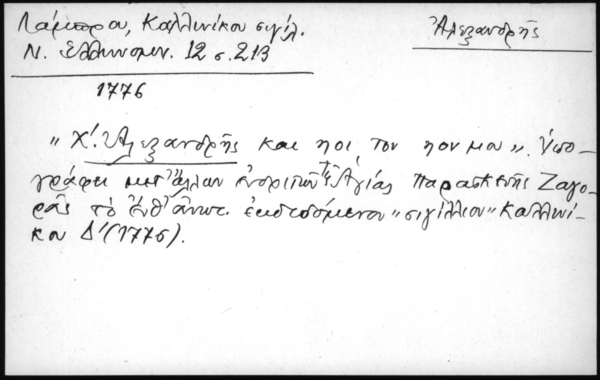 Λάμπρου, Καλλινίκου σιγίλ.
Ν. Ἑλληνομν. 12 σ. 213
Ἀλεξανδρῆς
1776
„ Χ΄. Ἀλεξανδρῆς και ποι τον που μου ". Ὑπο-
γράφει μετ' ἄλλων ἐνοριτῶν τῆς Ἁγίας Παρασκευῆς Ζαγο-
ρᾶς τὸ ἐνθ' ἀνωτ. ἐκδιδόμενον „ σιγίλλιον " Καλλινί-
κου Δ' (1775).